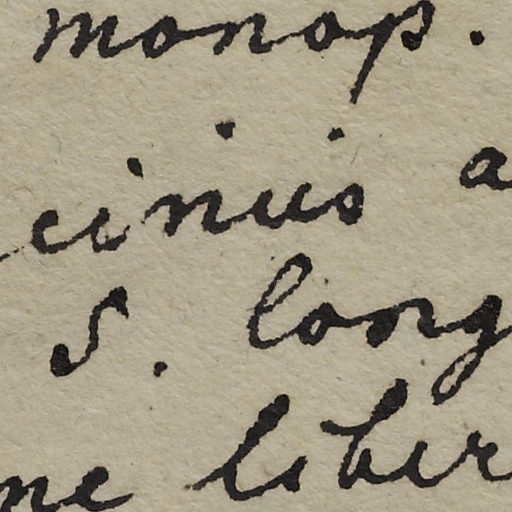 monop.
ciniis a
S. long
me liber